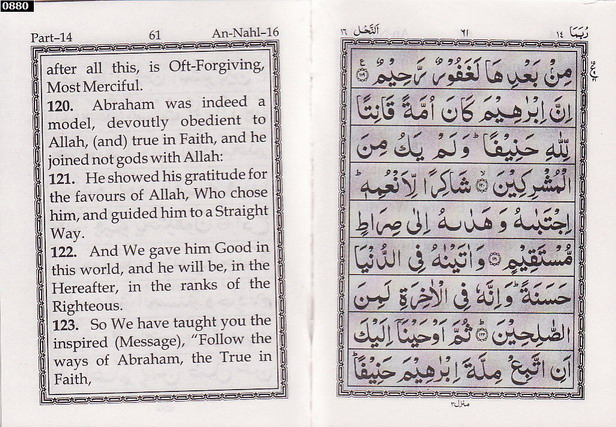 0880
Part-14 61 An-Nahl-16
after all this, is Oft-Forgiving,
Most Merciful.
120. Abraham was indeed a
model, devoutly obedient to
Allah, (and) true in Faith, and he
joined not gods with Allah:
121. He showed his gratitude for
the favours of Allah, Who chose
him, and guided him to a Straight
Way.
122. And We gave him Good in
this world, and he will be, in the
Hereafter, in the ranks of the
Righteous.
123. So We have taught you the
inspired (Message), “Follow the
ways of Abraham, the True in
Faith,
رُبَمَا ١٤ ٦١ اَلنَّحْل ١٦
مِنْۢ بَعْدِهَا لَغَفُوْرٌ رَّحِيْمٌ ۝١١٩
اِنَّ اِبْرٰهِيْمَ كَانَ اُمَّةً قَانِتًا
لِّلّٰهِ حَنِيْفًا ؕ وَلَمْ يَكُ مِنَ
الْمُشْرِكِيْنَ ۝١٢٠ شَاكِرًا لِّاَنْعُمِهٖ ؕ
اِجْتَبٰىهُ وَهَدٰىهُ اِلٰى صِرَاطٍ
مُّسْتَقِيْمٍ ۝١٢١ وَاٰتَيْنٰهُ فِى الدُّنْيَا
حَسَنَةً ؕ وَاِنَّهٗ فِى الْاٰخِرَةِ لَمِنَ
الصّٰلِحِيْنَ ۝١٢٢ ثُمَّ اَوْحَيْنَاۤ اِلَيْكَ
اَنِ اتَّبِعْ مِلَّةَ اِبْرٰهِيْمَ حَنِيْفًا ؕ
منزل ٣